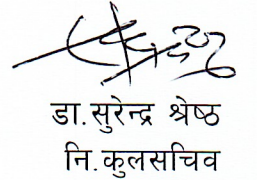 डा.सुरेन्द्र श्रेष्ठ
नि.कुलसचिव